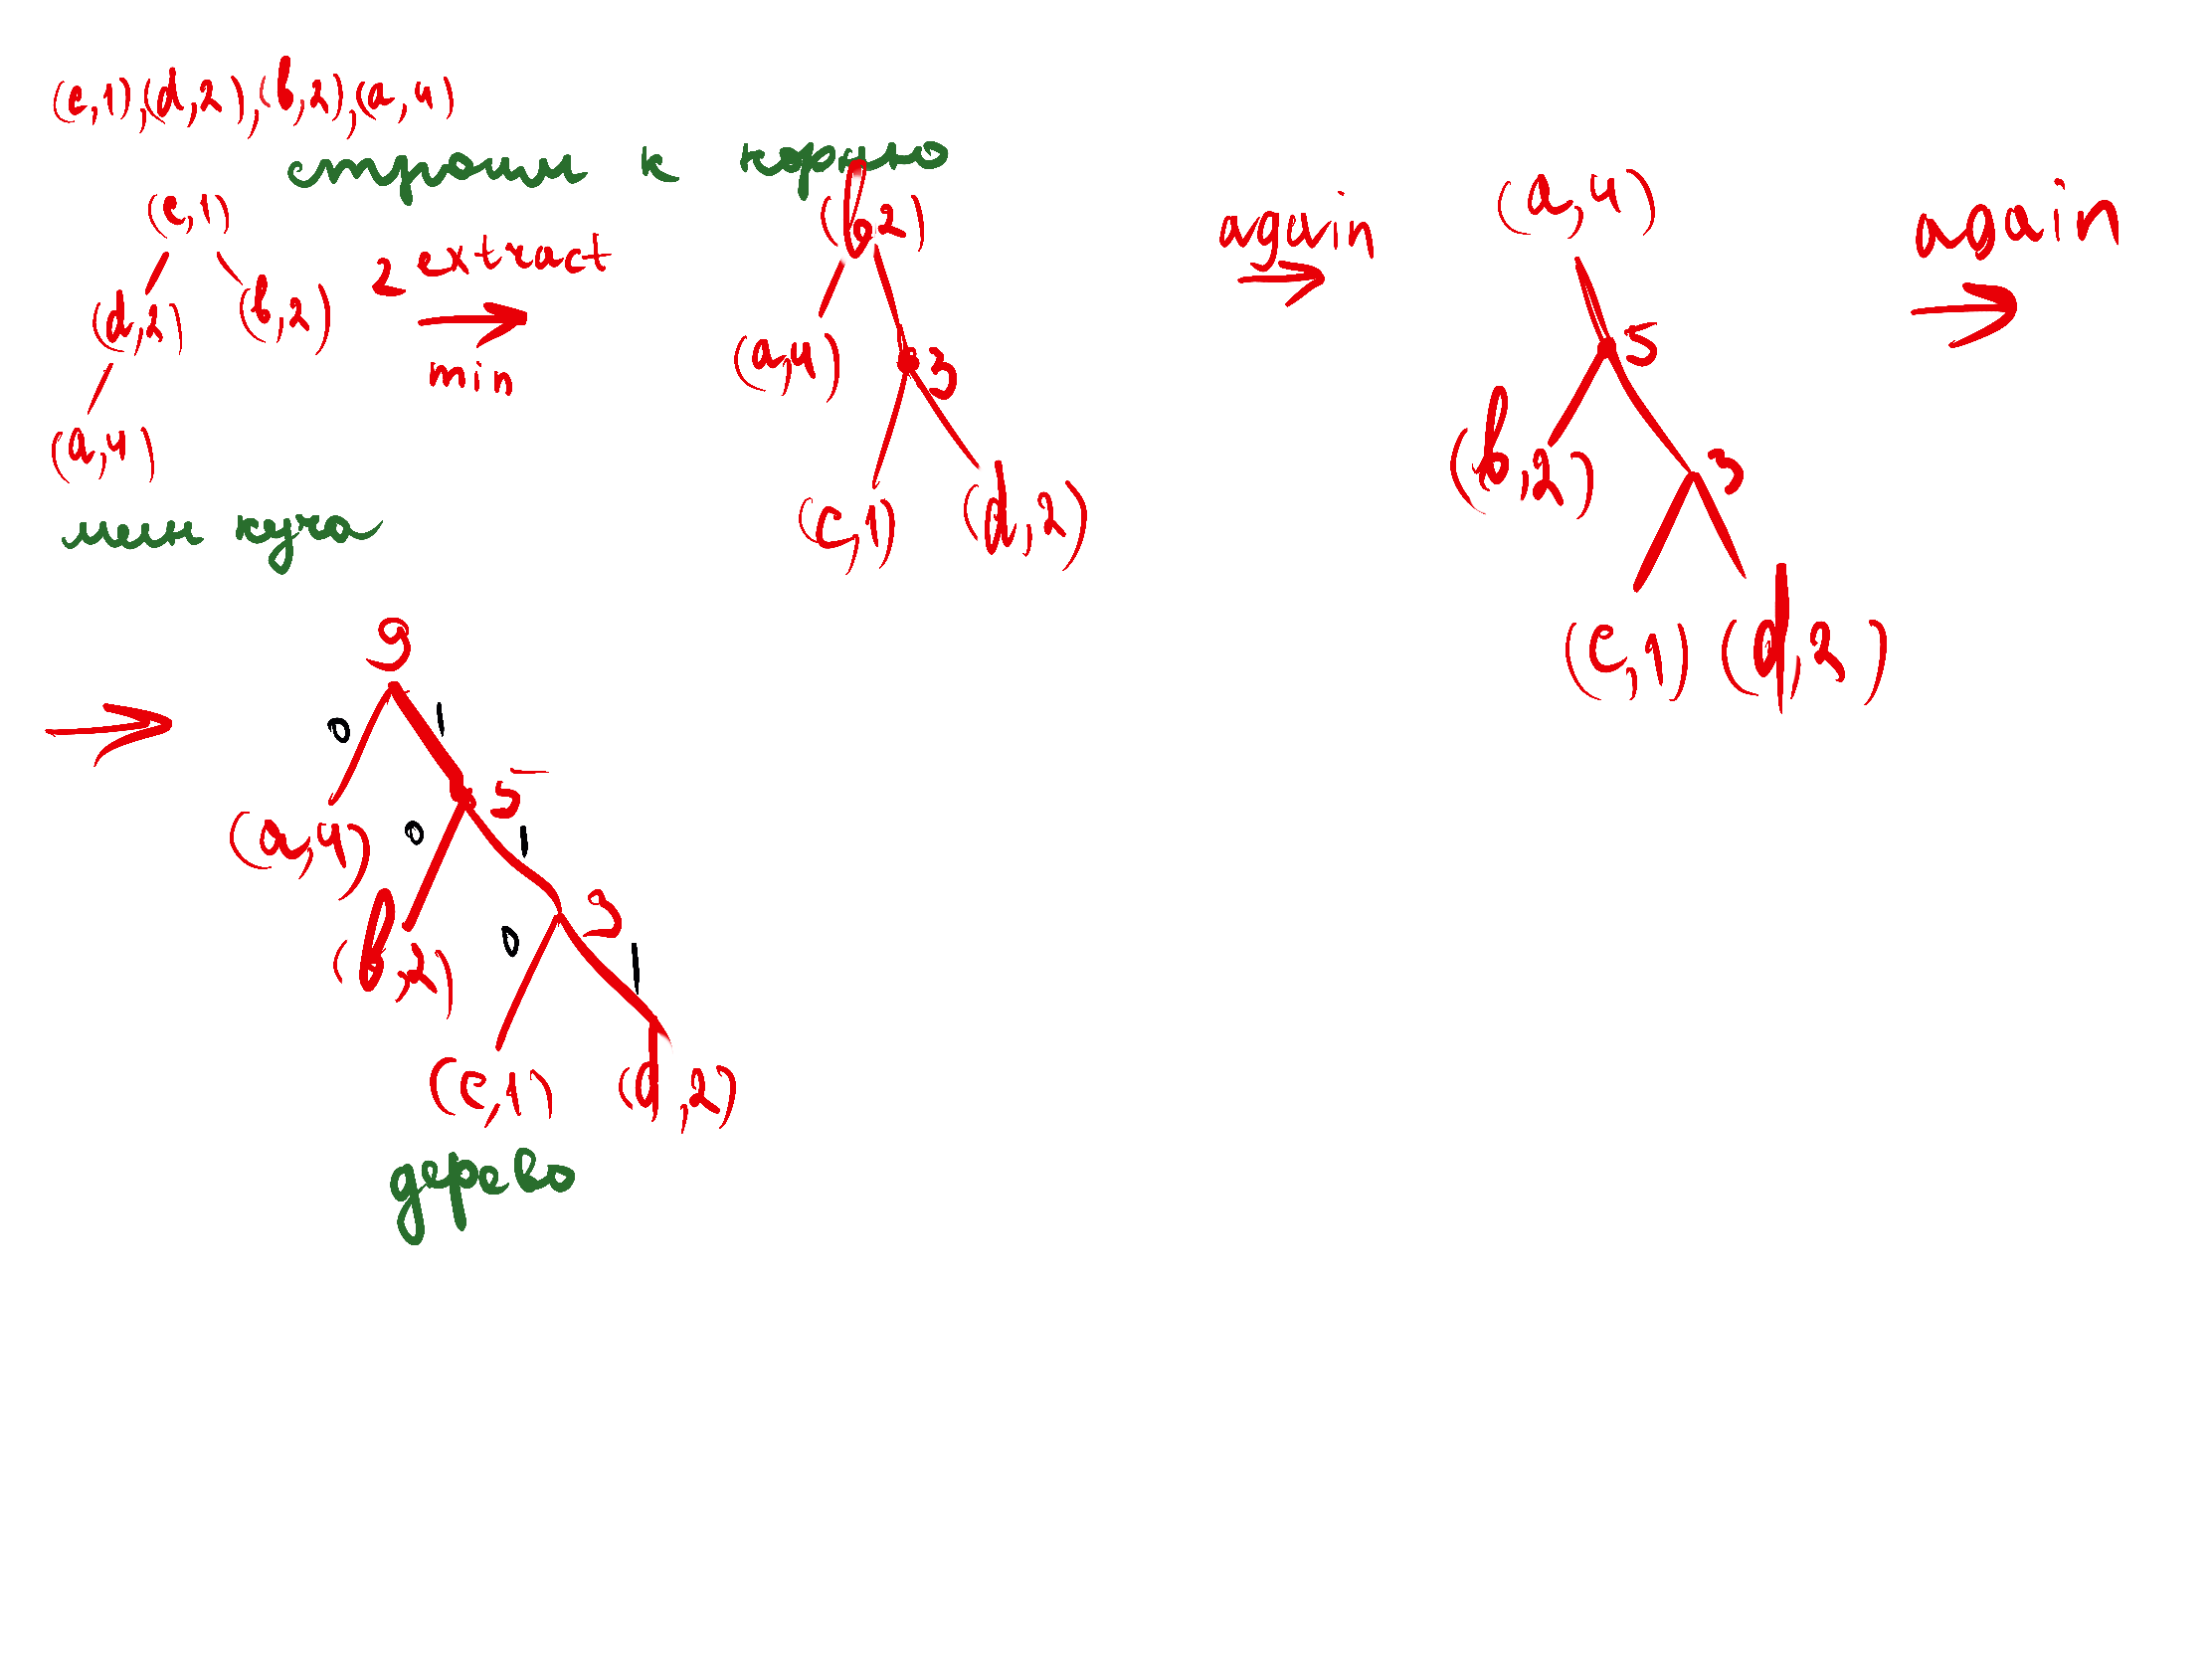 (c,1),(d,2),(b,2),(a,4)
строим к корню
(c,1)
(d,2) (b,2)
(a,4)
мин куча
2 extract
min
(b,2)
(a,4) 3
(c,1) (d,2)
again
(a,4)
5
(b,2) 3
(c,1) (d,2)
again
9
0 1
(a,4) 5
0 1
(b,2) 3
0 1
(c,1) (d,2)
дерево